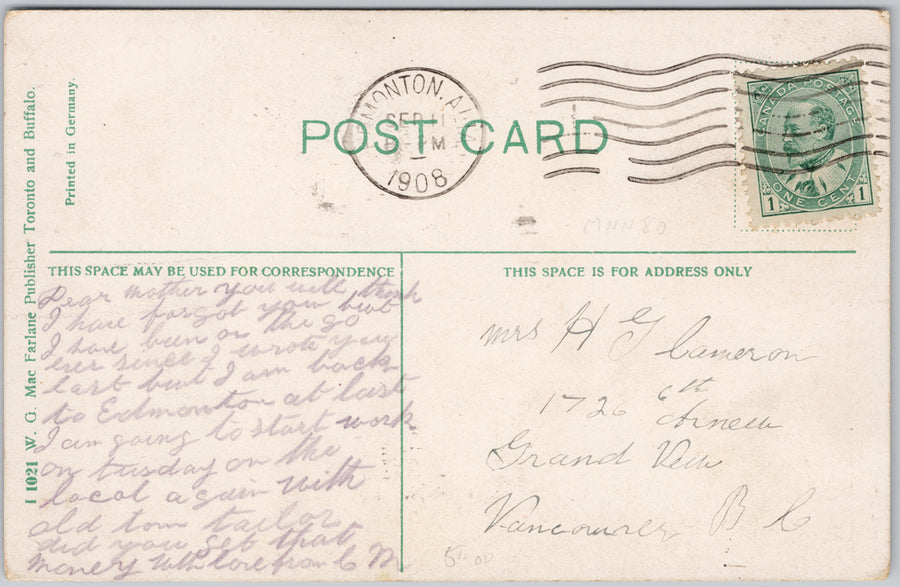 EDMONTON, ALTA
SEP 1
PM
1908
POST CARD
CANADA POSTAGE
1 ONE CENT 1
MNN80
Printed in Germany.
I 1021 W. G. Mac Farlane Publisher Toronto and Buffalo.
THIS SPACE MAY BE USED FOR CORRESPONDENCE
Dear mother you will think
I have forgot you but
I have been on the go
ever since I wrote you
last but I am back
to Edmonton at last
I am going to start work
on tusday on the
local again with
old tom tailor
did you get that
money with love from C M
THIS SPACE IS FOR ADDRESS ONLY
mrs H G Cameron
1726 6th
Grand View
Vancouver B C